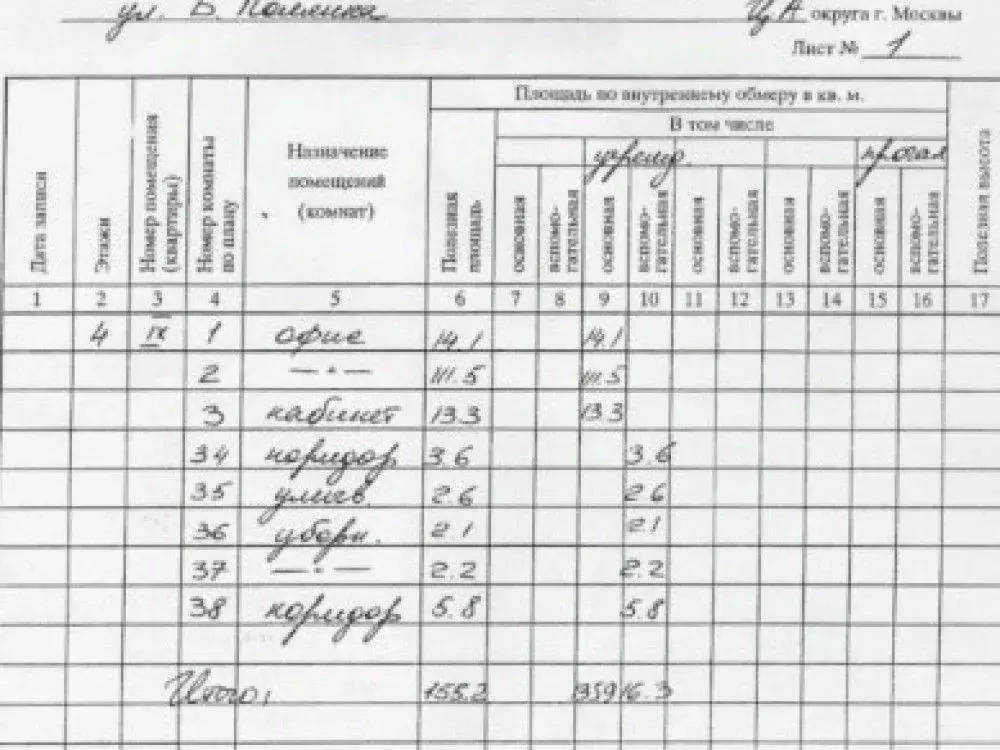 ул. Б. Полянка ЦА округа г. Москвы
Лист № 1
Площадь по внутреннему обмеру в кв. м.
В том числе
учрежд. прочая
Дата записи Этажи Номер помещения (квартиры) Номер комнаты по плану Назначение помещений (комнат) Полезная площадь основная вспомо-гательная основная вспомо-гательная основная вспомо-гательная основная вспомо-гательная основная вспомо-гательная Полезная высота
1 2 3 4 5 6 7 8 9 10 11 12 13 14 15 16 17
4 IV 1 офис 14.1 14.1
2 — " — 111.5 111.5
3 кабинет 13.3 13.3
34 коридор 3.6 3.6
35 умыв. 2.6 2.6
36 уборн. 2.1 2.1
37 — " — 2.2 2.2
38 коридор 5.8 5.8
Итого: 155.2 16.3